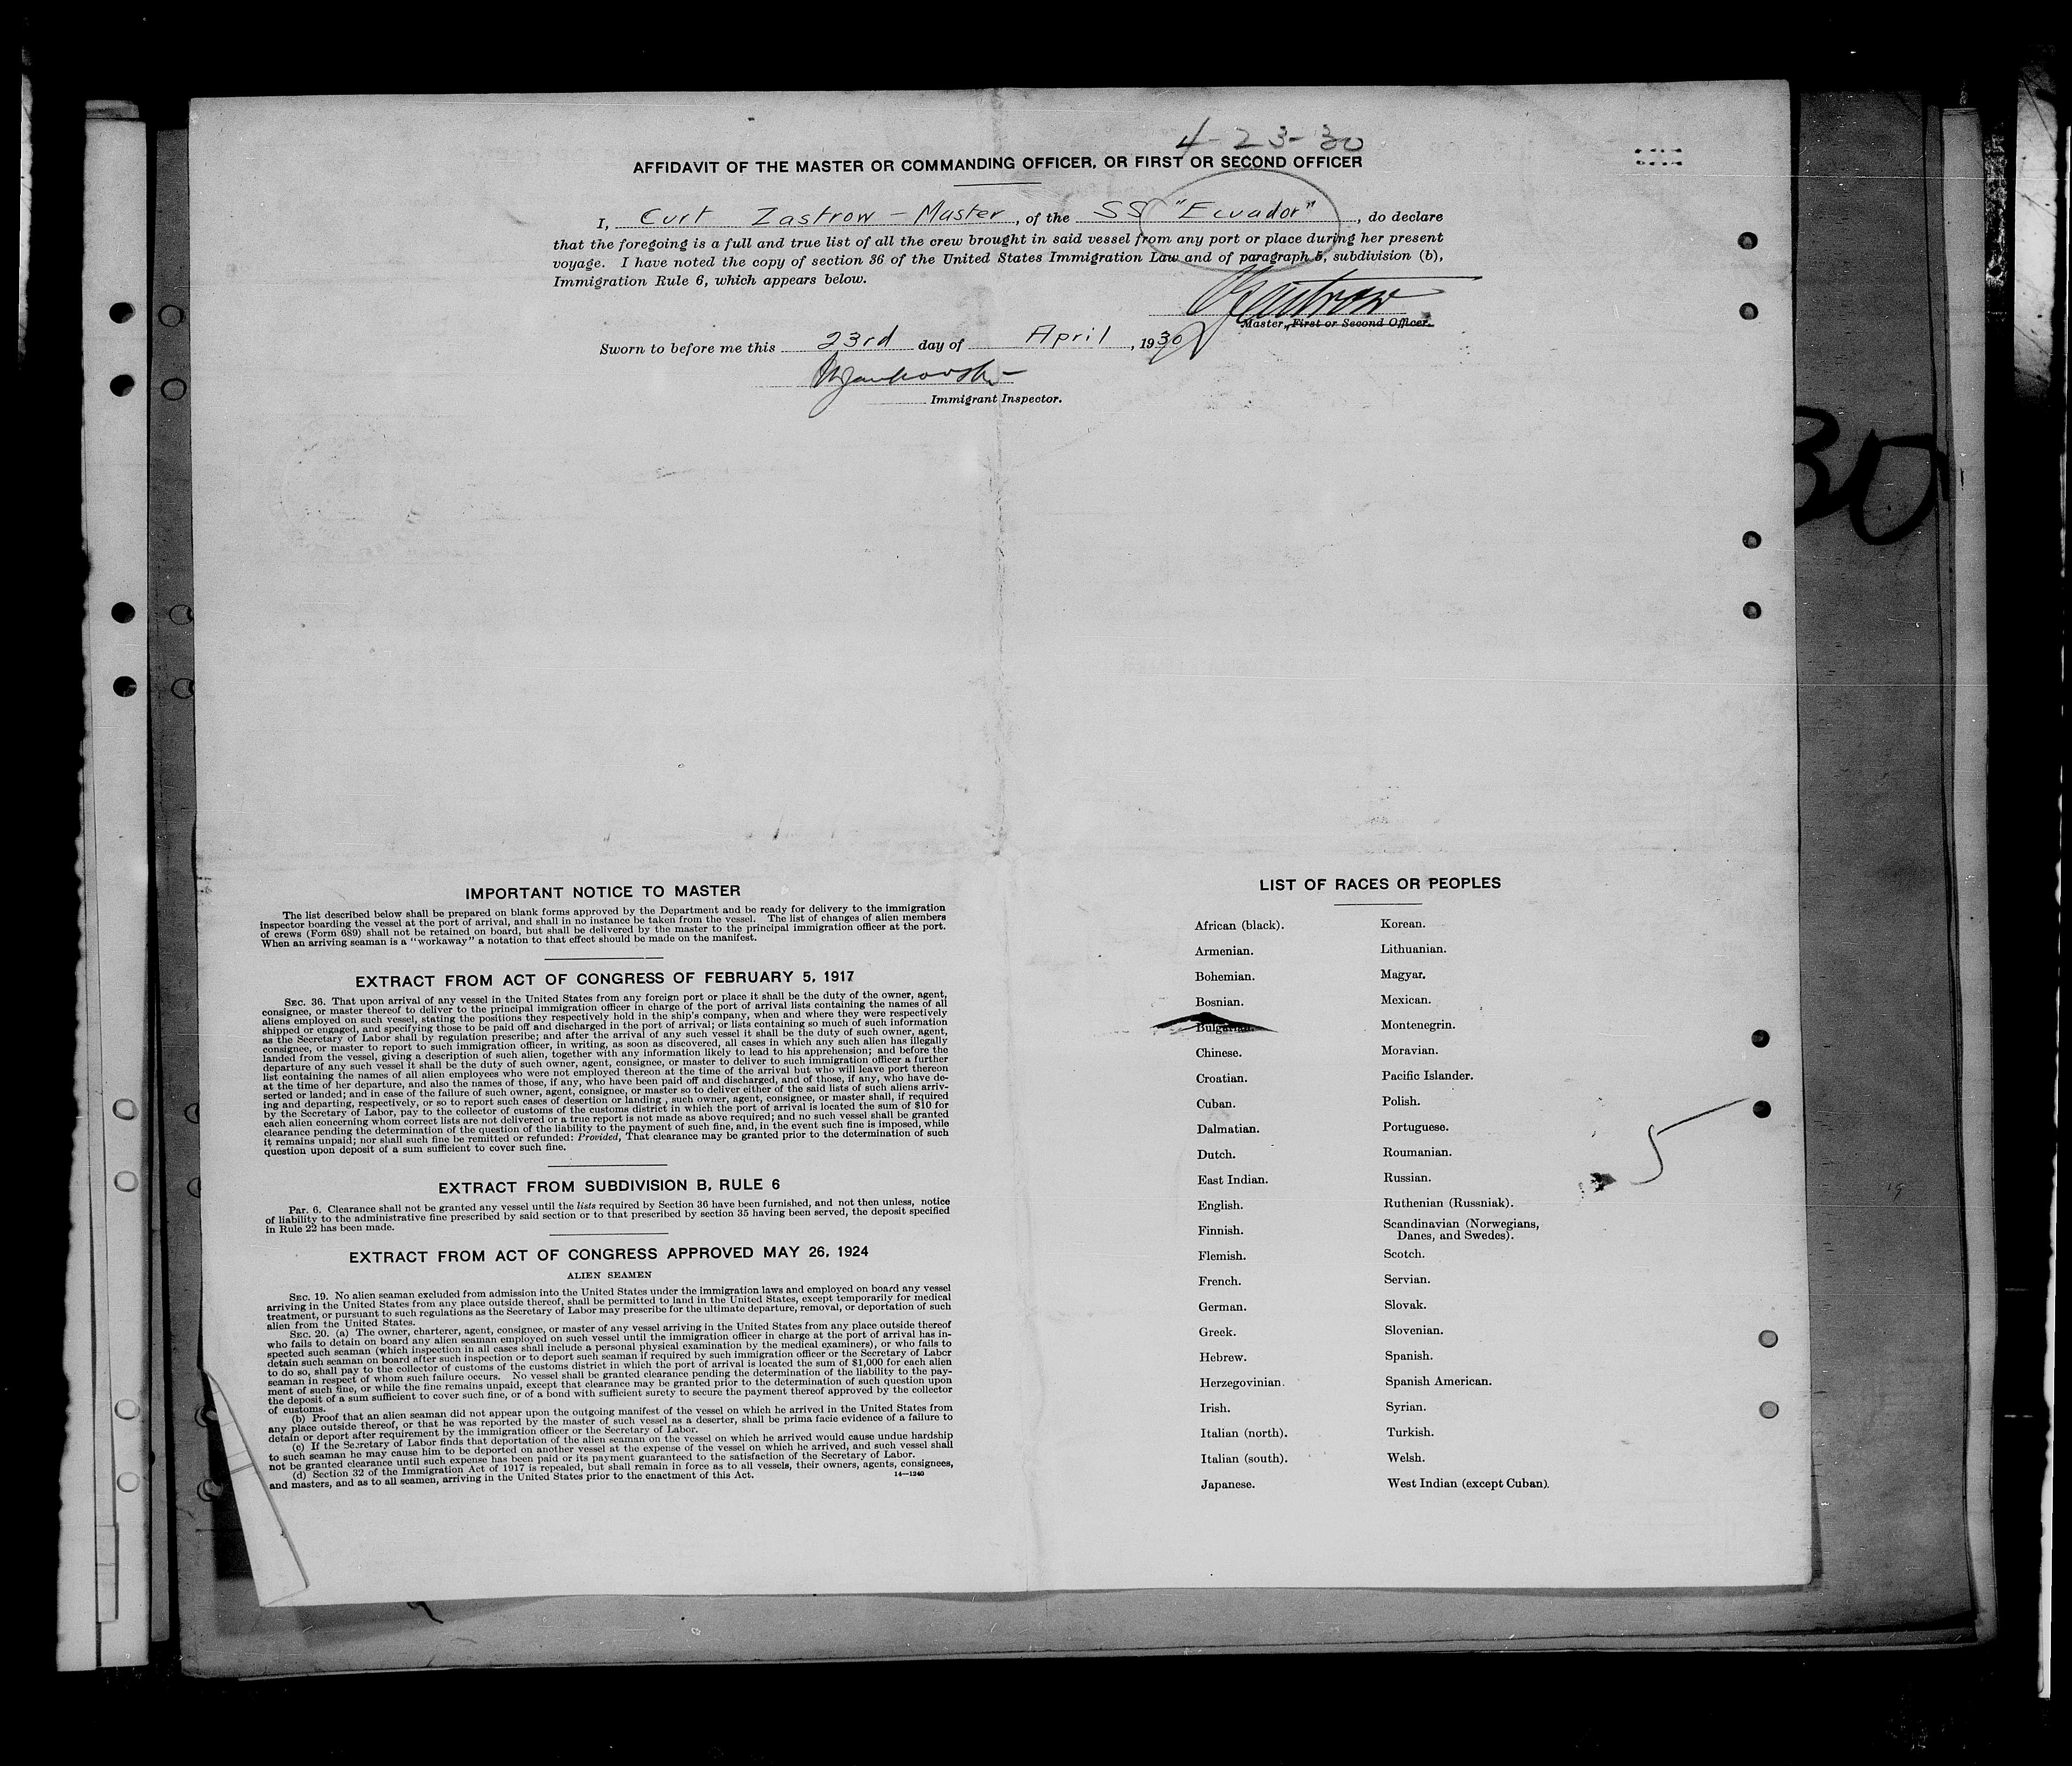 4-23-30
AFFIDAVIT OF THE MASTER OR COMMANDING OFFICER, OR FIRST OR SECOND OFFICER
I, Curt Zastrow - Master, of the SS "Ecuador", do declare
that the foregoing is a full and true list of all the crew brought in said vessel from any port or place during her present
voyage. I have noted the copy of section 36 of the United States Immigration Law and of paragraph 5, subdivision (b),
Immigration Rule 6, which appears below.
Master, First or Second Officer.
Sworn to before me this 23rd day of April, 1930
Immigrant Inspector.
30
IMPORTANT NOTICE TO MASTER
The list described below shall be prepared on blank forms approved by the Department and be ready for delivery to the immigration
inspector boarding the vessel at the port of arrival, and shall in no instance be taken from the vessel. The list of changes of alien members
of crews (Form 689) shall not be retained on board, but shall be delivered by the master to the principal immigration officer at the port.
When an arriving seaman is a "workaway" a notation to that effect should be made on the manifest.
EXTRACT FROM ACT OF CONGRESS OF FEBRUARY 5, 1917
SEC. 36. That upon arrival of any vessel in the United States from any foreign port or place it shall be the duty of the owner, agent,
consignee, or master thereof to deliver to the principal immigration officer in charge of the port of arrival lists containing the names of all
aliens employed on such vessel, stating the positions they respectively hold in the ship's company, when and where they were respectively
shipped or engaged, and specifying those to be paid off and discharged in the port of arrival; or lists containing so much of such information
as the Secretary of Labor shall by regulation prescribe; and after the arrival of any such vessel it shall be the duty of such owner, agent,
consignee, or master to report to such immigration officer, in writing, as soon as discovered, all cases in which any such alien has illegally
landed from the vessel, giving a description of such alien, together with any information likely to lead to his apprehension; and before the
departure of any such vessel it shall be the duty of such owner, agent, consignee, or master to deliver to such immigration officer a further
list containing the names of all alien employees who were not employed thereon at the time of the arrival but who will leave port thereon
at the time of her departure, and also the names of those, if any, who have been paid off and discharged, and of those, if any, who have de-
serted or landed; and in case of the failure of such owner, agent, consignee, or master so to deliver either of the said lists of such aliens arriv-
ing and departing, respectively, or so to report such cases of desertion or landing , such owner, agent, consignee, or master shall, if required
by the Secretary of Labor, pay to the collector of customs of the customs district in which the port of arrival is located the sum of $10 for
each alien concerning whom correct lists are not delivered or a true report is not made as above required; and no such vessel shall be granted
clearance pending the determination of the question of the liability to the payment of such fine, and, in the event such fine is imposed, while
it remains unpaid; nor shall such fine be remitted or refunded: Provided, That clearance may be granted prior to the determination of such
question upon deposit of a sum sufficient to cover such fine.
EXTRACT FROM SUBDIVISION B, RULE 6
PAR. 6. Clearance shall not be granted any vessel until the lists required by Section 36 have been furnished, and not then unless, notice
of liability to the administrative fine prescribed by said section or to that prescribed by section 35 having been served, the deposit specified
in Rule 22 has been made.
EXTRACT FROM ACT OF CONGRESS APPROVED MAY 26, 1924
ALIEN SEAMEN
SEC. 19. No alien seaman excluded from admission into the United States under the immigration laws and employed on board any vessel
arriving in the United States from any place outside thereof, shall be permitted to land in the United States, except temporarily for medical
treatment, or pursuant to such regulations as the Secretary of Labor may prescribe for the ultimate departure, removal, or deportation of such
alien from the United States.
SEC. 20. (a) The owner, charterer, agent, consignee, or master of any vessel arriving in the United States from any place outside thereof
who fails to detain on board any alien seaman employed on such vessel until the immigration officer in charge at the port of arrival has in-
spected such seaman (which inspection in all cases shall include a personal physical examination by the medical examiners), or who fails to
detain such seaman on board after such inspection or to deport such seaman if required by such immigration officer or the Secretary of Labor
to do so, shall pay to the collector of customs of the customs district in which the port of arrival is located the sum of $1,000 for each alien
seaman in respect of whom such failure occurs. No vessel shall be granted clearance pending the determination of the liability to the pay-
ment of such fine, or while the fine remains unpaid, except that clearance may be granted prior to the determination of such question upon
the deposit of a sum sufficient to cover such fine, or of a bond with sufficient surety to secure the payment thereof approved by the collector
of customs.
(b) Proof that an alien seaman did not appear upon the outgoing manifest of the vessel on which he arrived in the United States from
any place outside thereof, or that he was reported by the master of such vessel as a deserter, shall be prima facie evidence of a failure to
detain or deport after requirement by the immigration officer or the Secretary of Labor.
(c) If the Secretary of Labor finds that deportation of the alien seaman on the vessel on which he arrived would cause undue hardship
to such seaman he may cause him to be deported on another vessel at the expense of the vessel on which he arrived, and such vessel shall
not be granted clearance until such expense has been paid or its payment guaranteed to the satisfaction of the Secretary of Labor.
(d) Section 32 of the Immigration Act of 1917 is repealed, but shall remain in force as to all vessels, their owners, agents, consignees,
and masters, and as to all seamen, arriving in the United States prior to the enactment of this Act. 14—1240
LIST OF RACES OR PEOPLES
African (black).
Armenian.
Bohemian.
Bosnian.
Bulgarian.
Chinese.
Croatian.
Cuban.
Dalmatian.
Dutch.
East Indian.
English.
Finnish.
Flemish.
French.
German.
Greek.
Hebrew.
Herzegovinian.
Irish.
Italian (north).
Italian (south).
Japanese.
Korean.
Lithuanian.
Magyar.
Mexican.
Montenegrin.
Moravian.
Pacific Islander.
Polish.
Portuguese.
Roumanian.
Russian.
Ruthenian (Russniak).
Scandinavian (Norwegians,
Danes, and Swedes).
Scotch.
Servian.
Slovak.
Slovenian.
Spanish.
Spanish American.
Syrian.
Turkish.
Welsh.
West Indian (except Cuban).
5